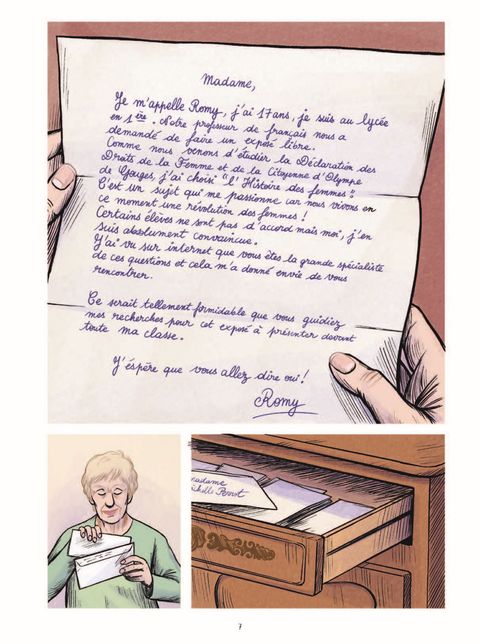 Madame,
Je m'appelle Romy, j'ai 17 ans, je suis au lycée
en 1ère. Notre professeur de français nous a
demandé de faire un exposé libre.
Comme nous venons d'étudier la Déclaration des
Droits de la Femme et de la Citoyenne d'Olympe
de Gouges, j'ai choisi "l'Histoire des femmes".
C'est un sujet qui me passionne car nous vivons en
ce moment une révolution des femmes !
Certains élèves ne sont pas d'accord mais moi, j'en
suis absolument convaincue.
J'ai vu sur internet que vous êtes la grande spécialiste
de ces questions et cela m'a donné envie de vous
rencontrer.
Ce serait tellement formidable que vous guidiez
mes recherches pour cet exposé à présenter devant
toute ma classe.
J'éspère que vous allez dire oui !
Romy
madame
Michelle Perrot
7